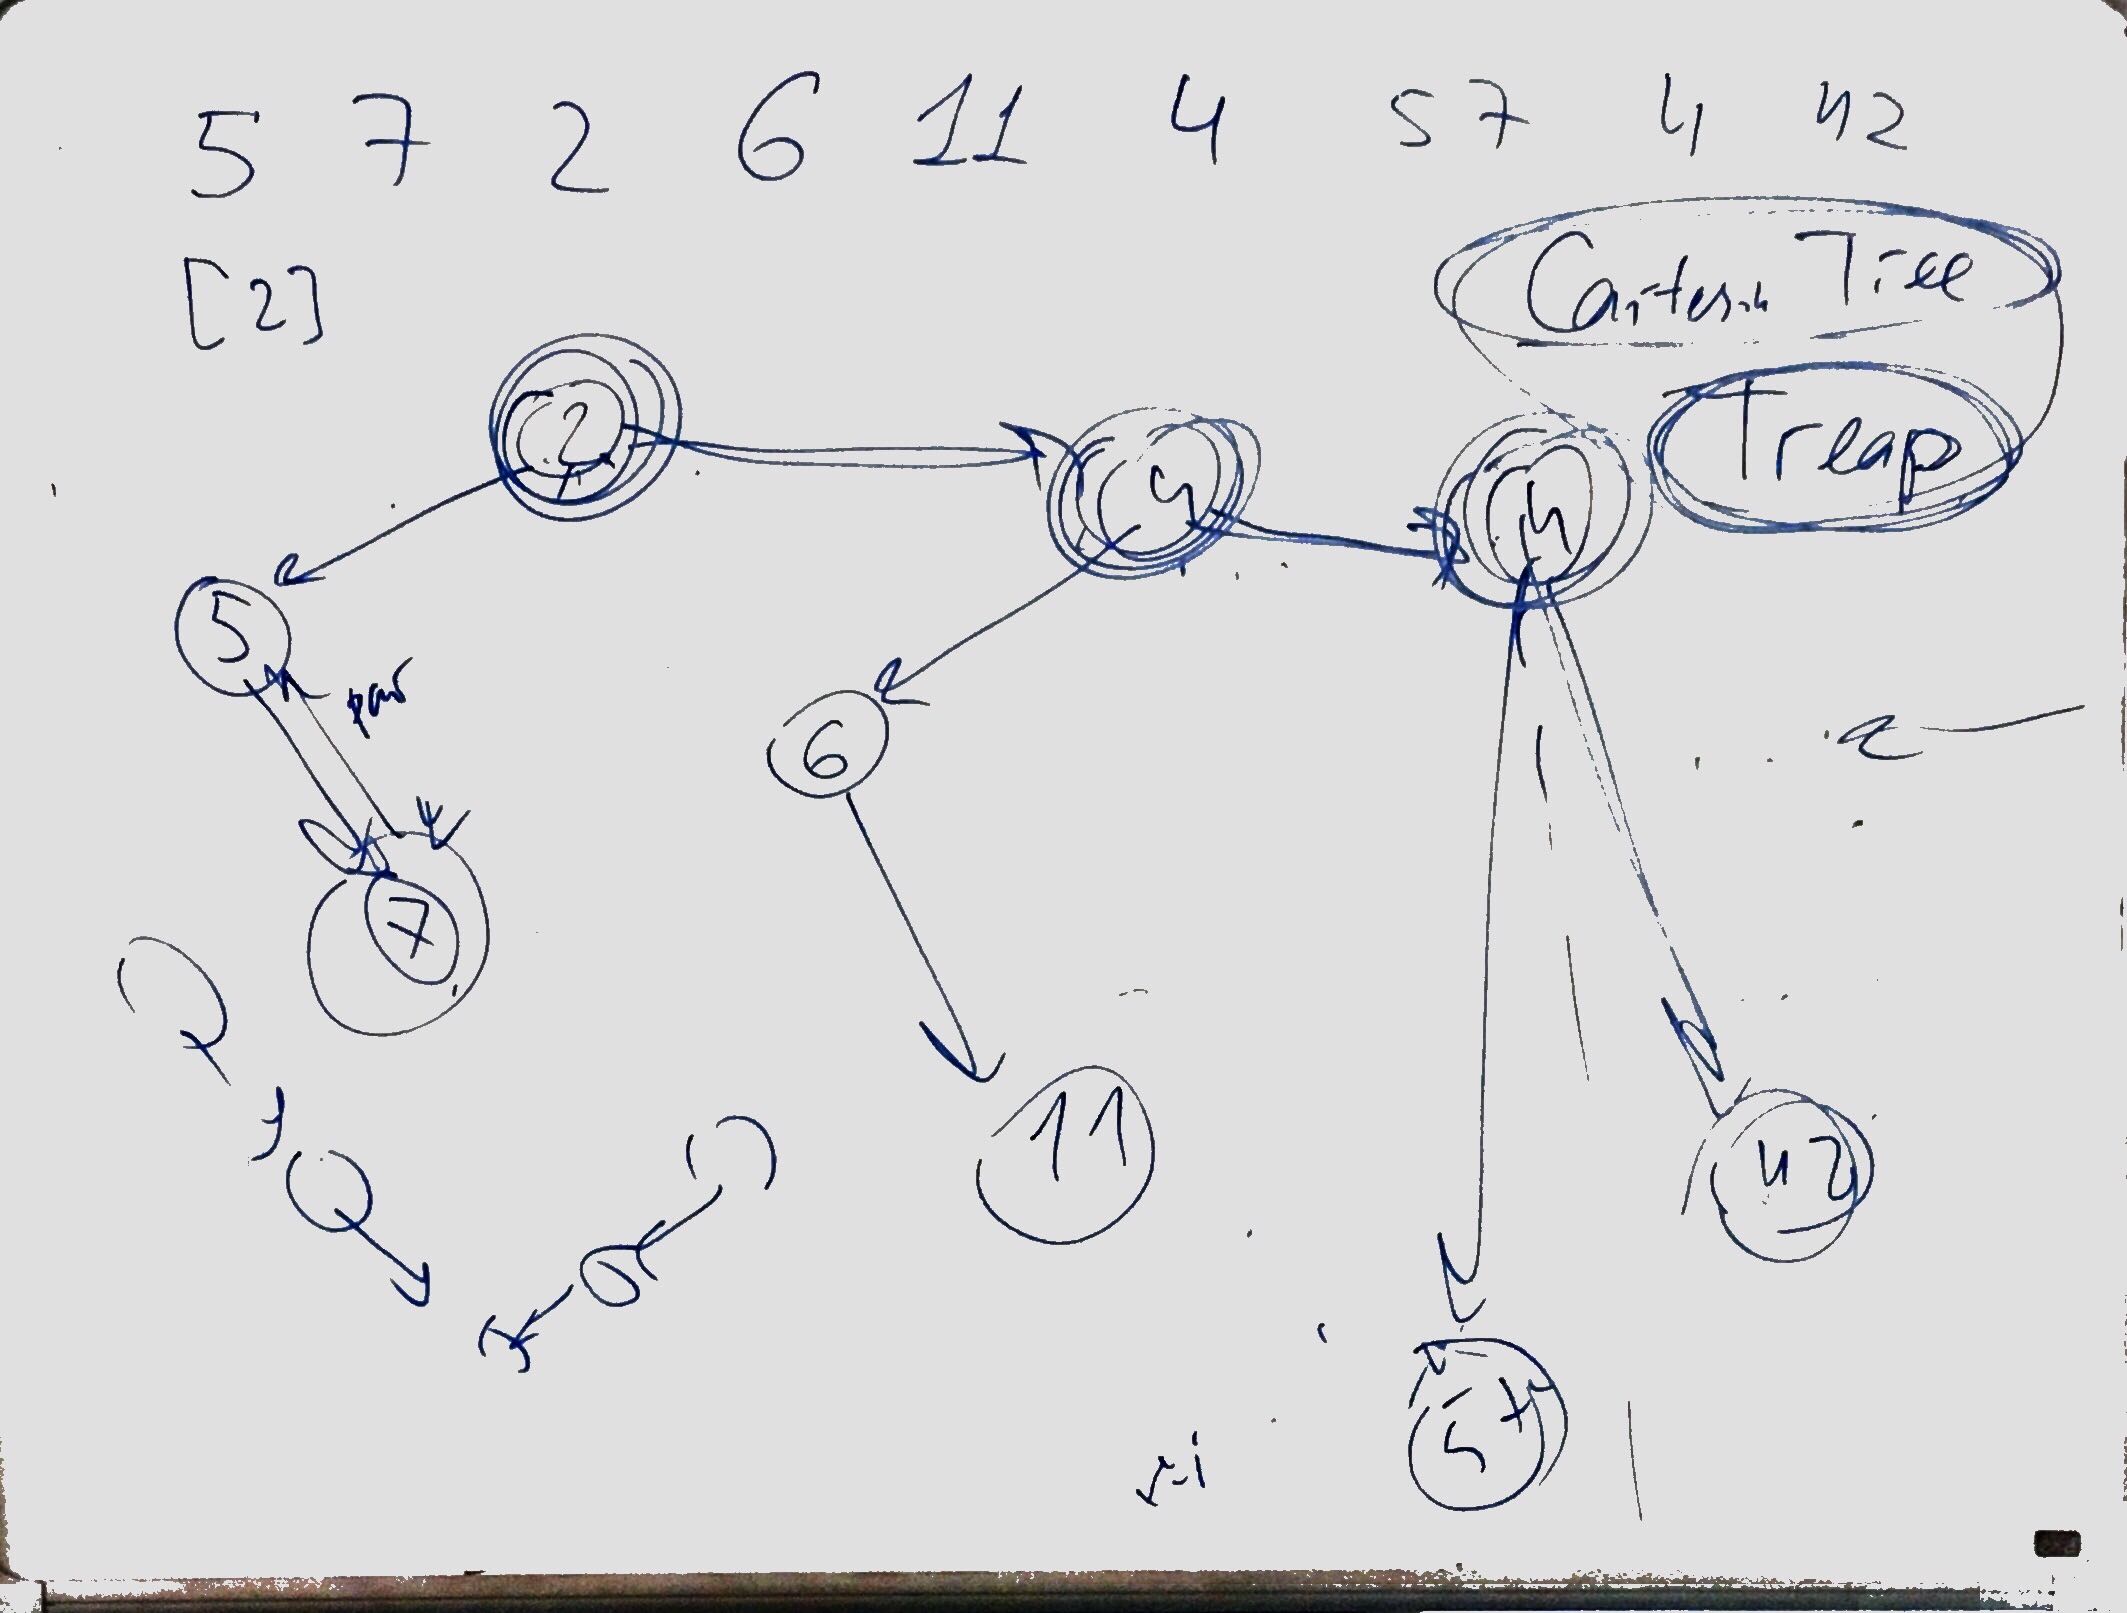 5 7 2 6 11 4 57 4 42
[2]
Cartesian Tree
Treap
2
4
4
5
par
6
7
11
42
57